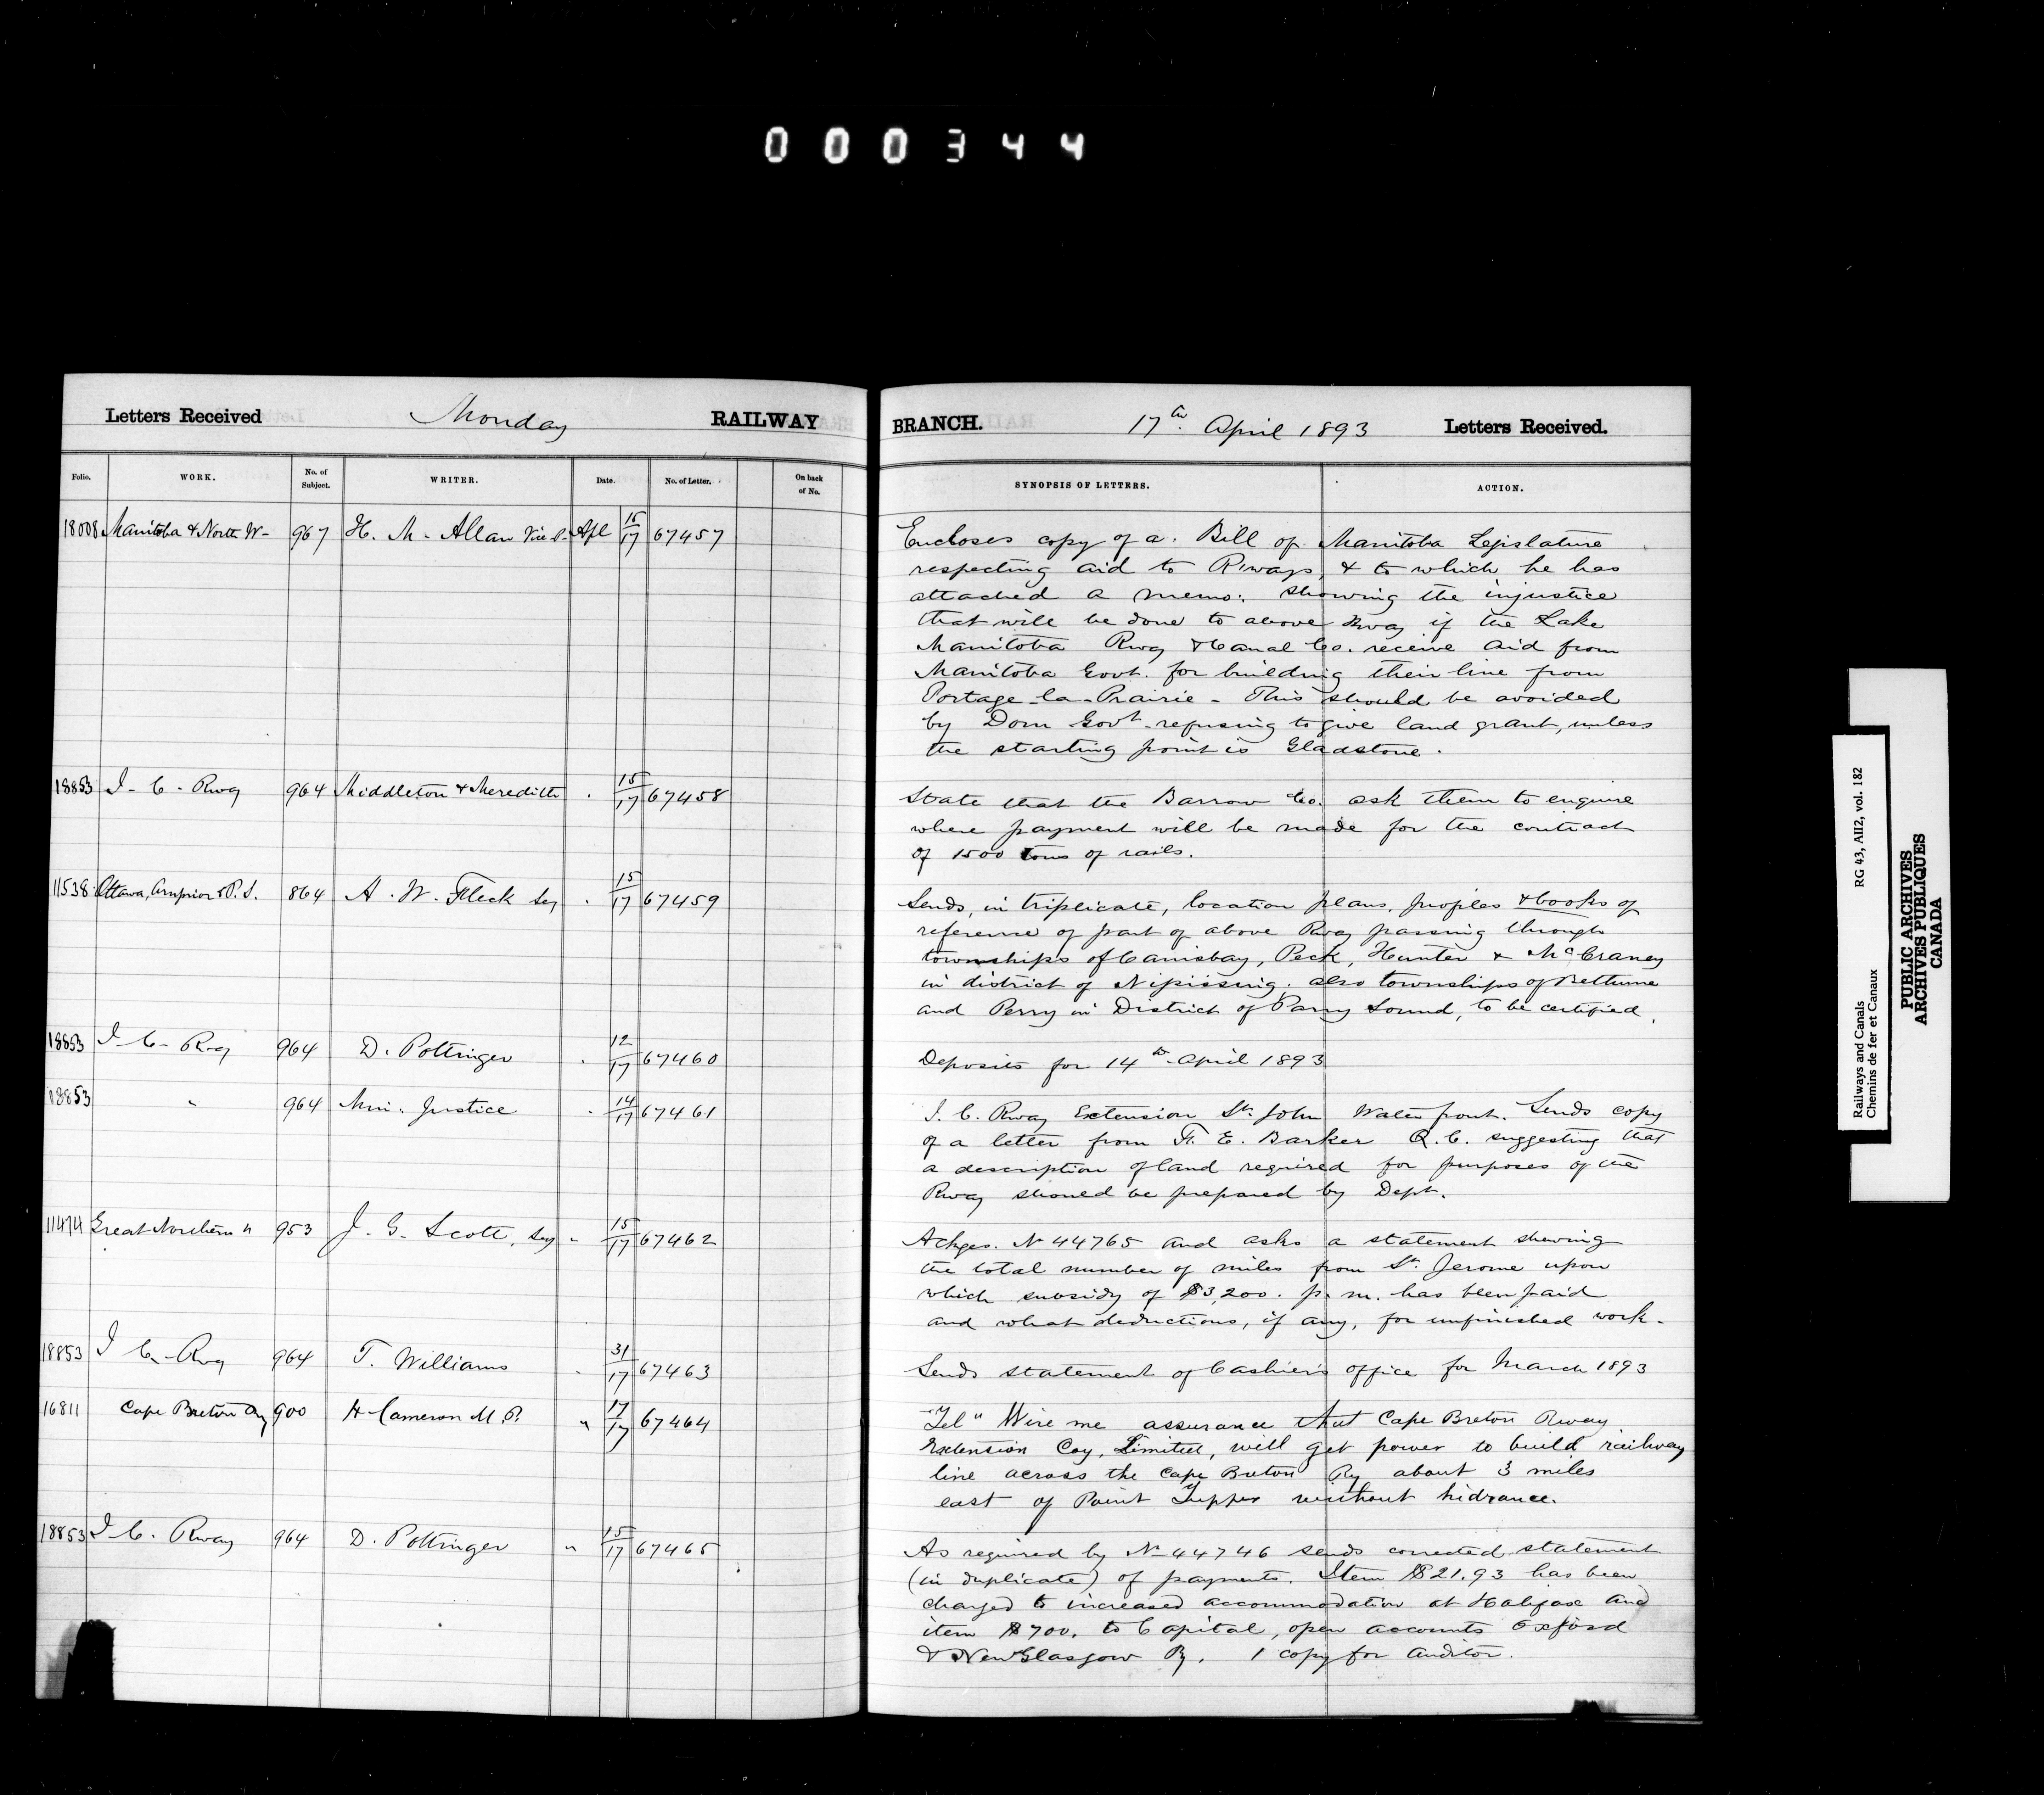 000344
Letters Received Monday RAILWAY BRANCH. 17th April 1893 Letters Received.
Folio. WORK. No. of Subject. WRITER. Date. No. of Letter. On back of No. SYNOPSIS OF LETTERS. ACTION.
18008 Manitoba & North W- 967 H. M. Allan Vice P- Apl 15/17 67457
Encloses copy of a Bill of Manitoba Legislature
respecting aid to R'ways, & to which he has
attached a memo: showing the injustice
that will be done to above Rway if the Lake
Manitoba Rwy & Canal Co. receive aid from
Manitoba Govt. for building their line from
Portage-la-Prairie - This should be avoided
by Dom Govt. refusing to give land grant, unless
the starting point is Gladstone.
18853 I. C. Rwy 964 Middleton & Meredith . 15/17 67458
State that the Barrow Co. ask them to enquire
where payment will be made for the contract
of 1500 tons of rails.
11538 Ottawa, Arnprior & P. S. 864 A. W. Fleck Sey . 15/17 67459
Sends, in triplicate, location plans, profiles & books of
reference of part of above Rway passing through
townships of Canisbay, Peck, Hunter & McCraney
in district of Nipissing, also townships of Bethune
and Perry in District of Parry Sound, to be certified.
18853 I. C. Rwy 964 D. Pottinger . 12/17 67460
Deposits for 14th April 1893
18853 " 964 Min. Justice . 14/17 67461
I. C. Rway Extension St. John Water front. Sends copy
of a letter from F. E. Barker Q.C. suggesting that
a description of land required for purposes of the
Rway should be prepared by Dept.
11474 Great Northern " 953 J. G. Scott, Sey " 15/17 67462
Ackges. No 44765 and asks a statement shewing
the total number of miles from St. Jerome upon
which subsidy of $3,200. p. m. has been paid
and what deductions, if any, for unfinished work.
18853 I. C. Rwy 964 T. Williams . 31/17 67463
Sends statement of Cashier's office for March 1893
16811 Cape Breton Ry 900 H Cameron M.P. " 17/17 67464
"Tel" Wire me assurance that Cape Breton Rway
Extension Coy, Limited, will get power to build railway
line across the Cape Breton Ry about 3 miles
east of Point Tupper without hidrance.
18853 I. C. Rway 964 D. Pottinger " 15/17 67465
As required by No 44746 sends corrected statement
(in duplicate) of payments. Item $821.93 has been
charged to increased accommodation at Halifax and
item $700. to Capital, open accounts Oxford
& New Glasgow Ry. 1 copy for Auditor.
Railways and Canals RG 43, AII2, vol. 182
Chemins de fer et Canaux
PUBLIC ARCHIVES
ARCHIVES PUBLIQUES
CANADA